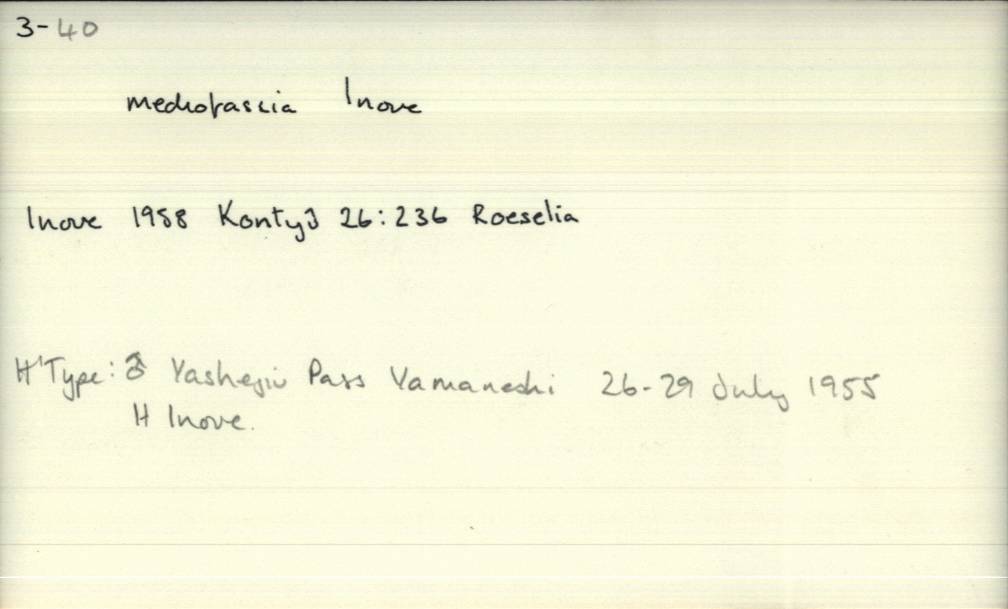 3-40
mediofascia Inoue
Inoue 1958 Kontyû 26:236 Roeselia
H'Type: ♂ Yashajin Pass Yamanashi 26-29 July 1955
H Inoue.